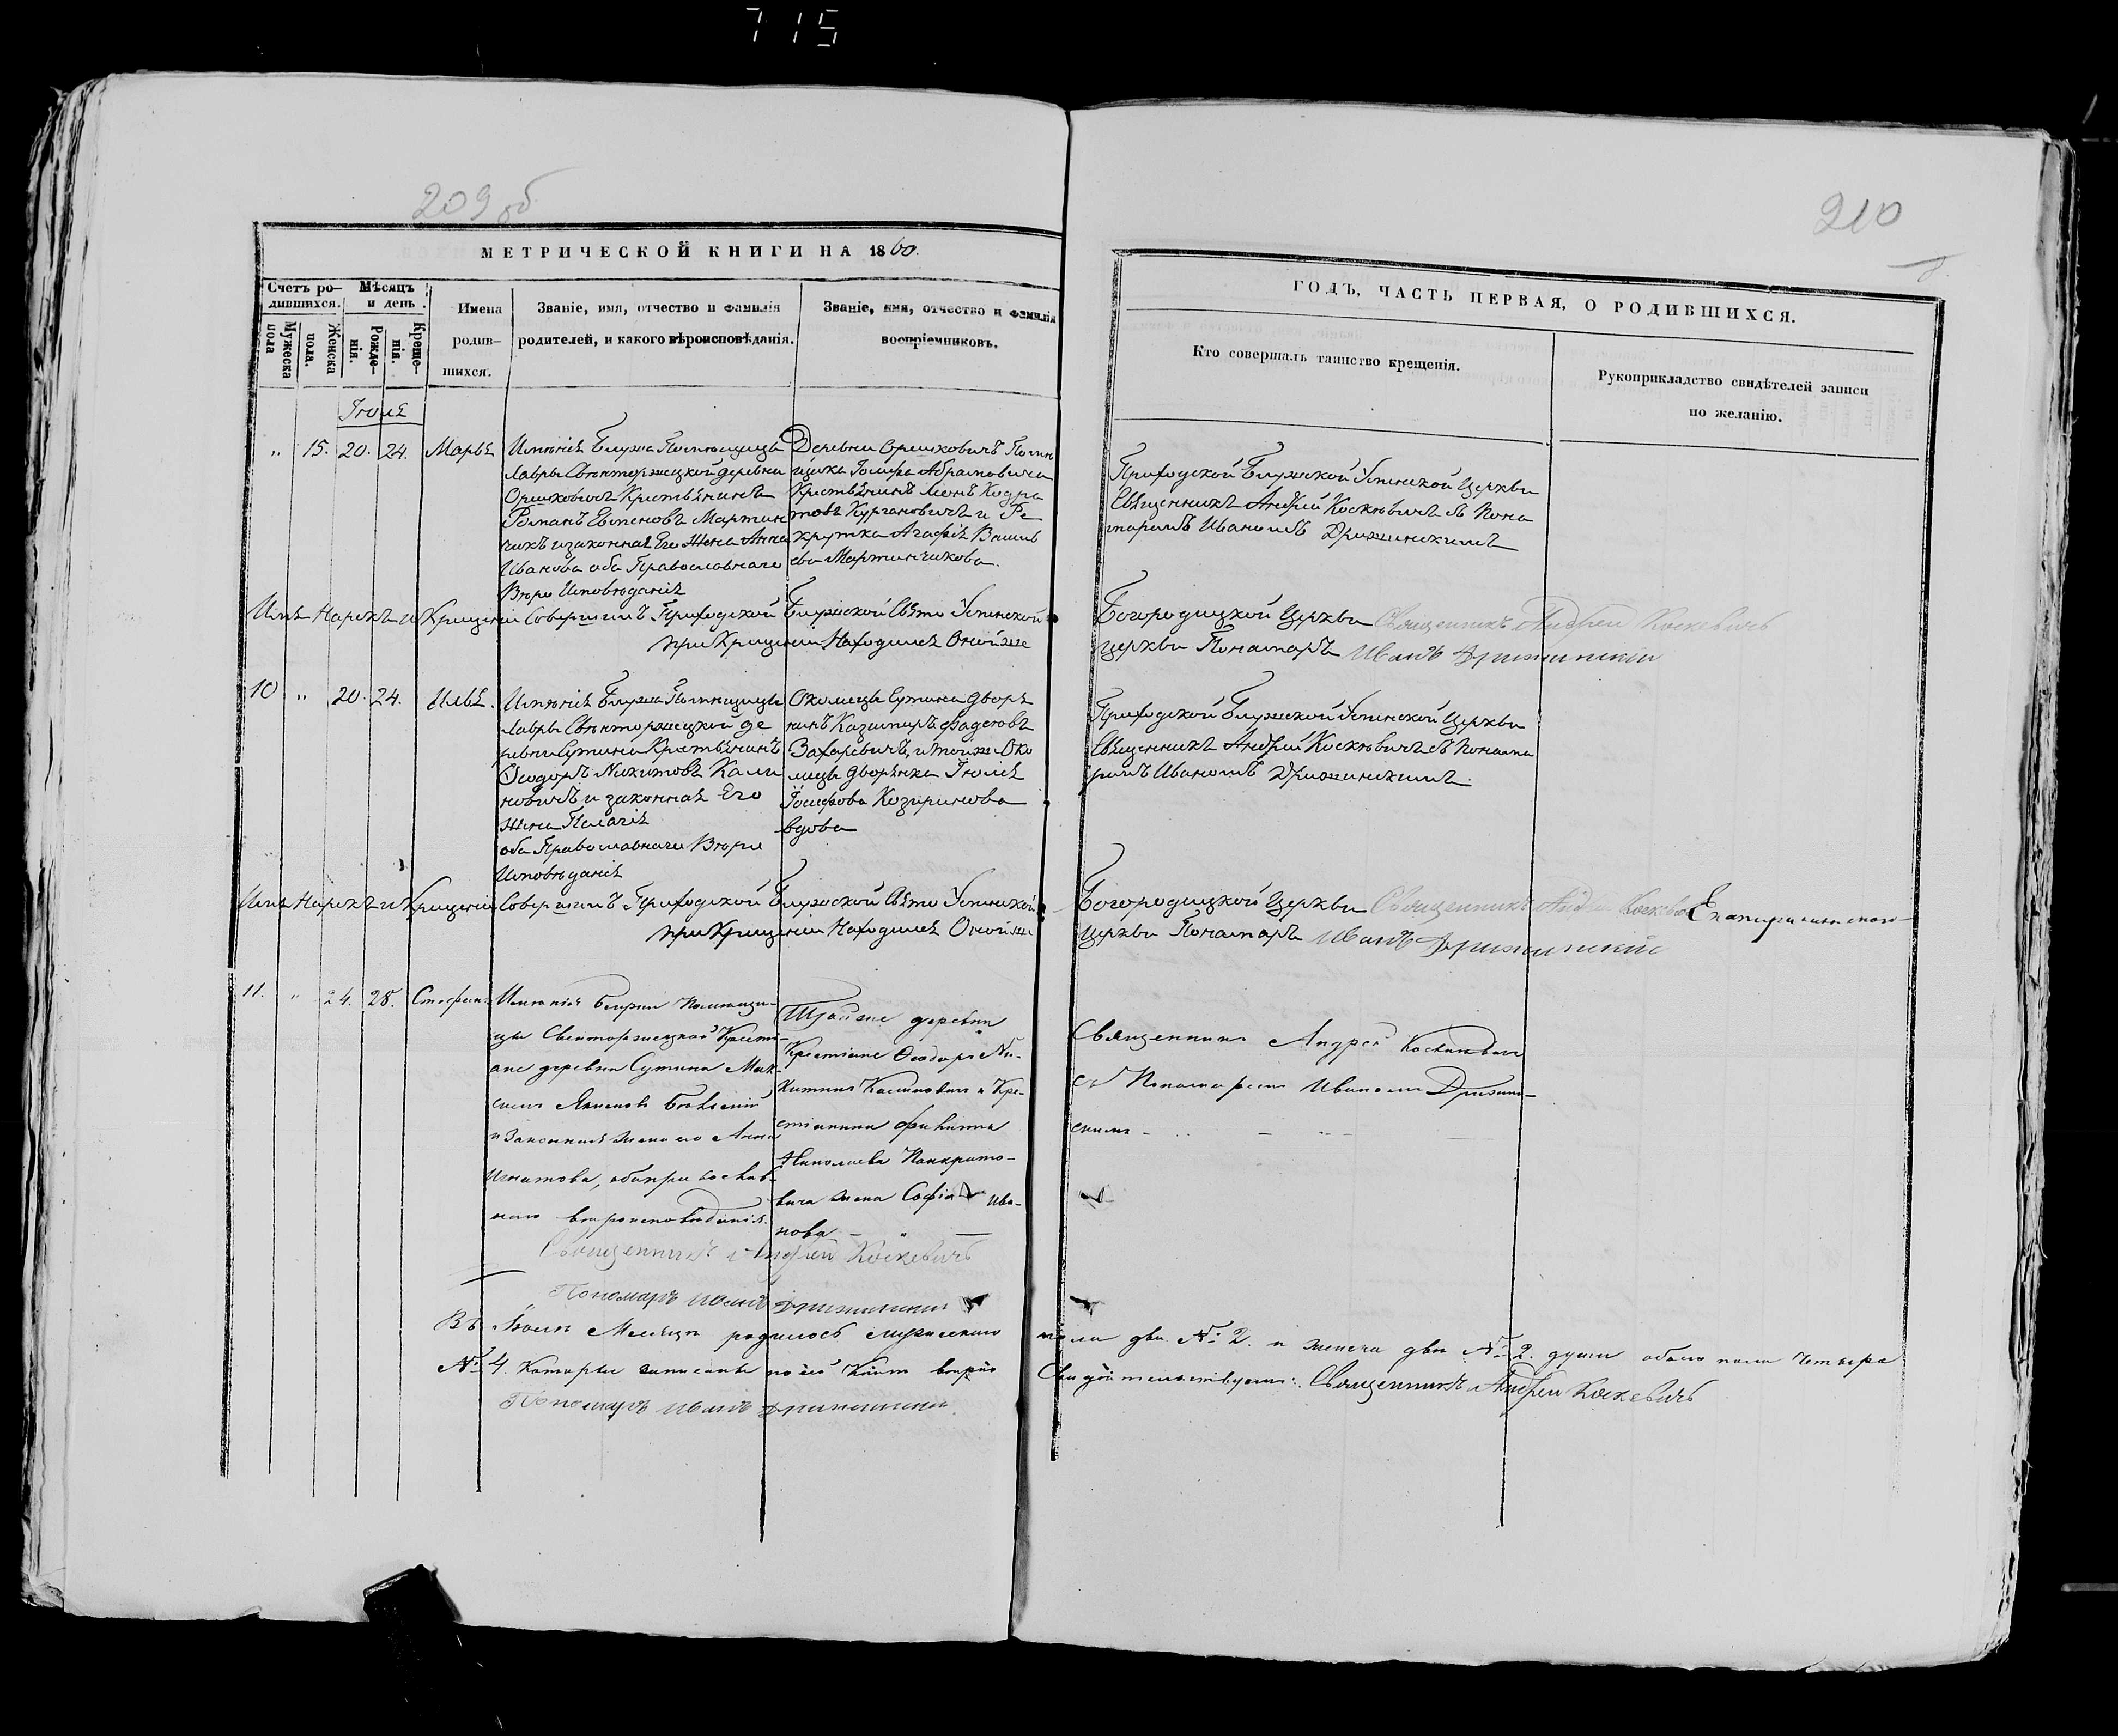 715
209 об
МЕТРИЧЕСКОЙ КНИГИ НА 1860.
Счетъ ро-
дившихся.
Мѣсяцъ
и день.
Мужеска
пола
Женска
пола.
Рожде-
нія.
Креще-
нія.
Имена
родив-
шихся.
Званіе, имя, отчество и фамилія
родителей, и какого вѣроисповѣданія.
Званіе, имя, отчество и фамилія
воспріемниковъ.
Іюль
" 15. 20. 24. Марья
Имѣнія Блужа Помѣщицы
Лавры Свѣнторжецкой деревни
Орѣшковичъ Крестьянинъ
Романъ Мартин
чикъ и законная Его Жена Анна
Иванова оба Православнаго
Вѣро Исповѣданія
Деревни Орешковичъ Помѣ
щика Іосифа Абрамовича
Крестьянинъ Кодра
товъ Кургановичъ и Ре
крутка Агафія Васил
ева Мартинчикова.
Имя Нарекъ и Крещеніе Совершилъ Приходской Блужской Свято Успенской
при Крещеніи Находился Оной же
10 " 20. 24. Илья.
Имѣнія Блужа Помѣщицы
Лавры Свѣнторжецкой де
ревни Сутина Крестьянинъ
Ѳеодоръ Никитовъ Кали
новичъ и законная Его
Жена Пелагія
оба Православнаго Вѣро
Исповѣданія
Околицы Сутина дворя
нинъ Казимиръ Фадеговъ
Захаревичъ, и тойже Око
лицы дворянка Іюлія
Іосифова Козиринова
вдова
Имя Нарекъ и Крещеніе Совершилъ Приходской Блужской Свято Успенской
при Крещеніи Находился Оной же
11. " 24. 28. Стефанъ
Имѣнія Блужи Помѣщи-
цы Свенторжецкой Крестья-
не деревни Сутина Мак-
симъ Якимовъ
и Законная жена его Анна
Игнатова, оба православ-
наго вѣроисповѣданія.
Тойже деревни
Крестьяне Ѳеодоръ Ни-
китинъ Калиновичъ и Кре-
стьянина
Николаева Панкрато-
вича жена Софія Ива-
нова
Священникъ Андрей Коскевичъ
Пономарь Иванъ Дрижинскій
Въ Іюль Месяцъ родилось мужескаго
№ 4. Которые записаны по сей Книге вѣрно
Пономарь Иванъ Дрижинскій
210
ГОДЪ, ЧАСТЬ ПЕРВАЯ, О РОДИВШИХСЯ.
Кто совершалъ таинство крещенія.
Рукоприкладство свидѣтелей записи
по желанію.
Приходской Блужской Успенской Церкви
Священникъ Андрей Коскевичъ съ Поно
маромъ Иваномъ Дрижинскимъ
Богородицкой Церкви Священникъ Андрей Коскевичъ
церкви Пономаръ Иванъ Дрижинскій
Приходской Блужской Успенской Церкви
Священникъ Андрей Коскевичъ съ Понома
ромъ Иваномъ Дрижинскимъ.
Богородицкой Церкви Священникъ Андрей Коскевичъ
церкви Пономаръ Иванъ Дрижинскій
Священникъ Андрей Коскевичъ
съ Пономаремъ Иваномъ Дрижин-
скимъ
пола два № 2. и женска два № 2. души обоего пола четыре
Свидѣтельствуемъ: Священникъ Андрей Коскевичъ